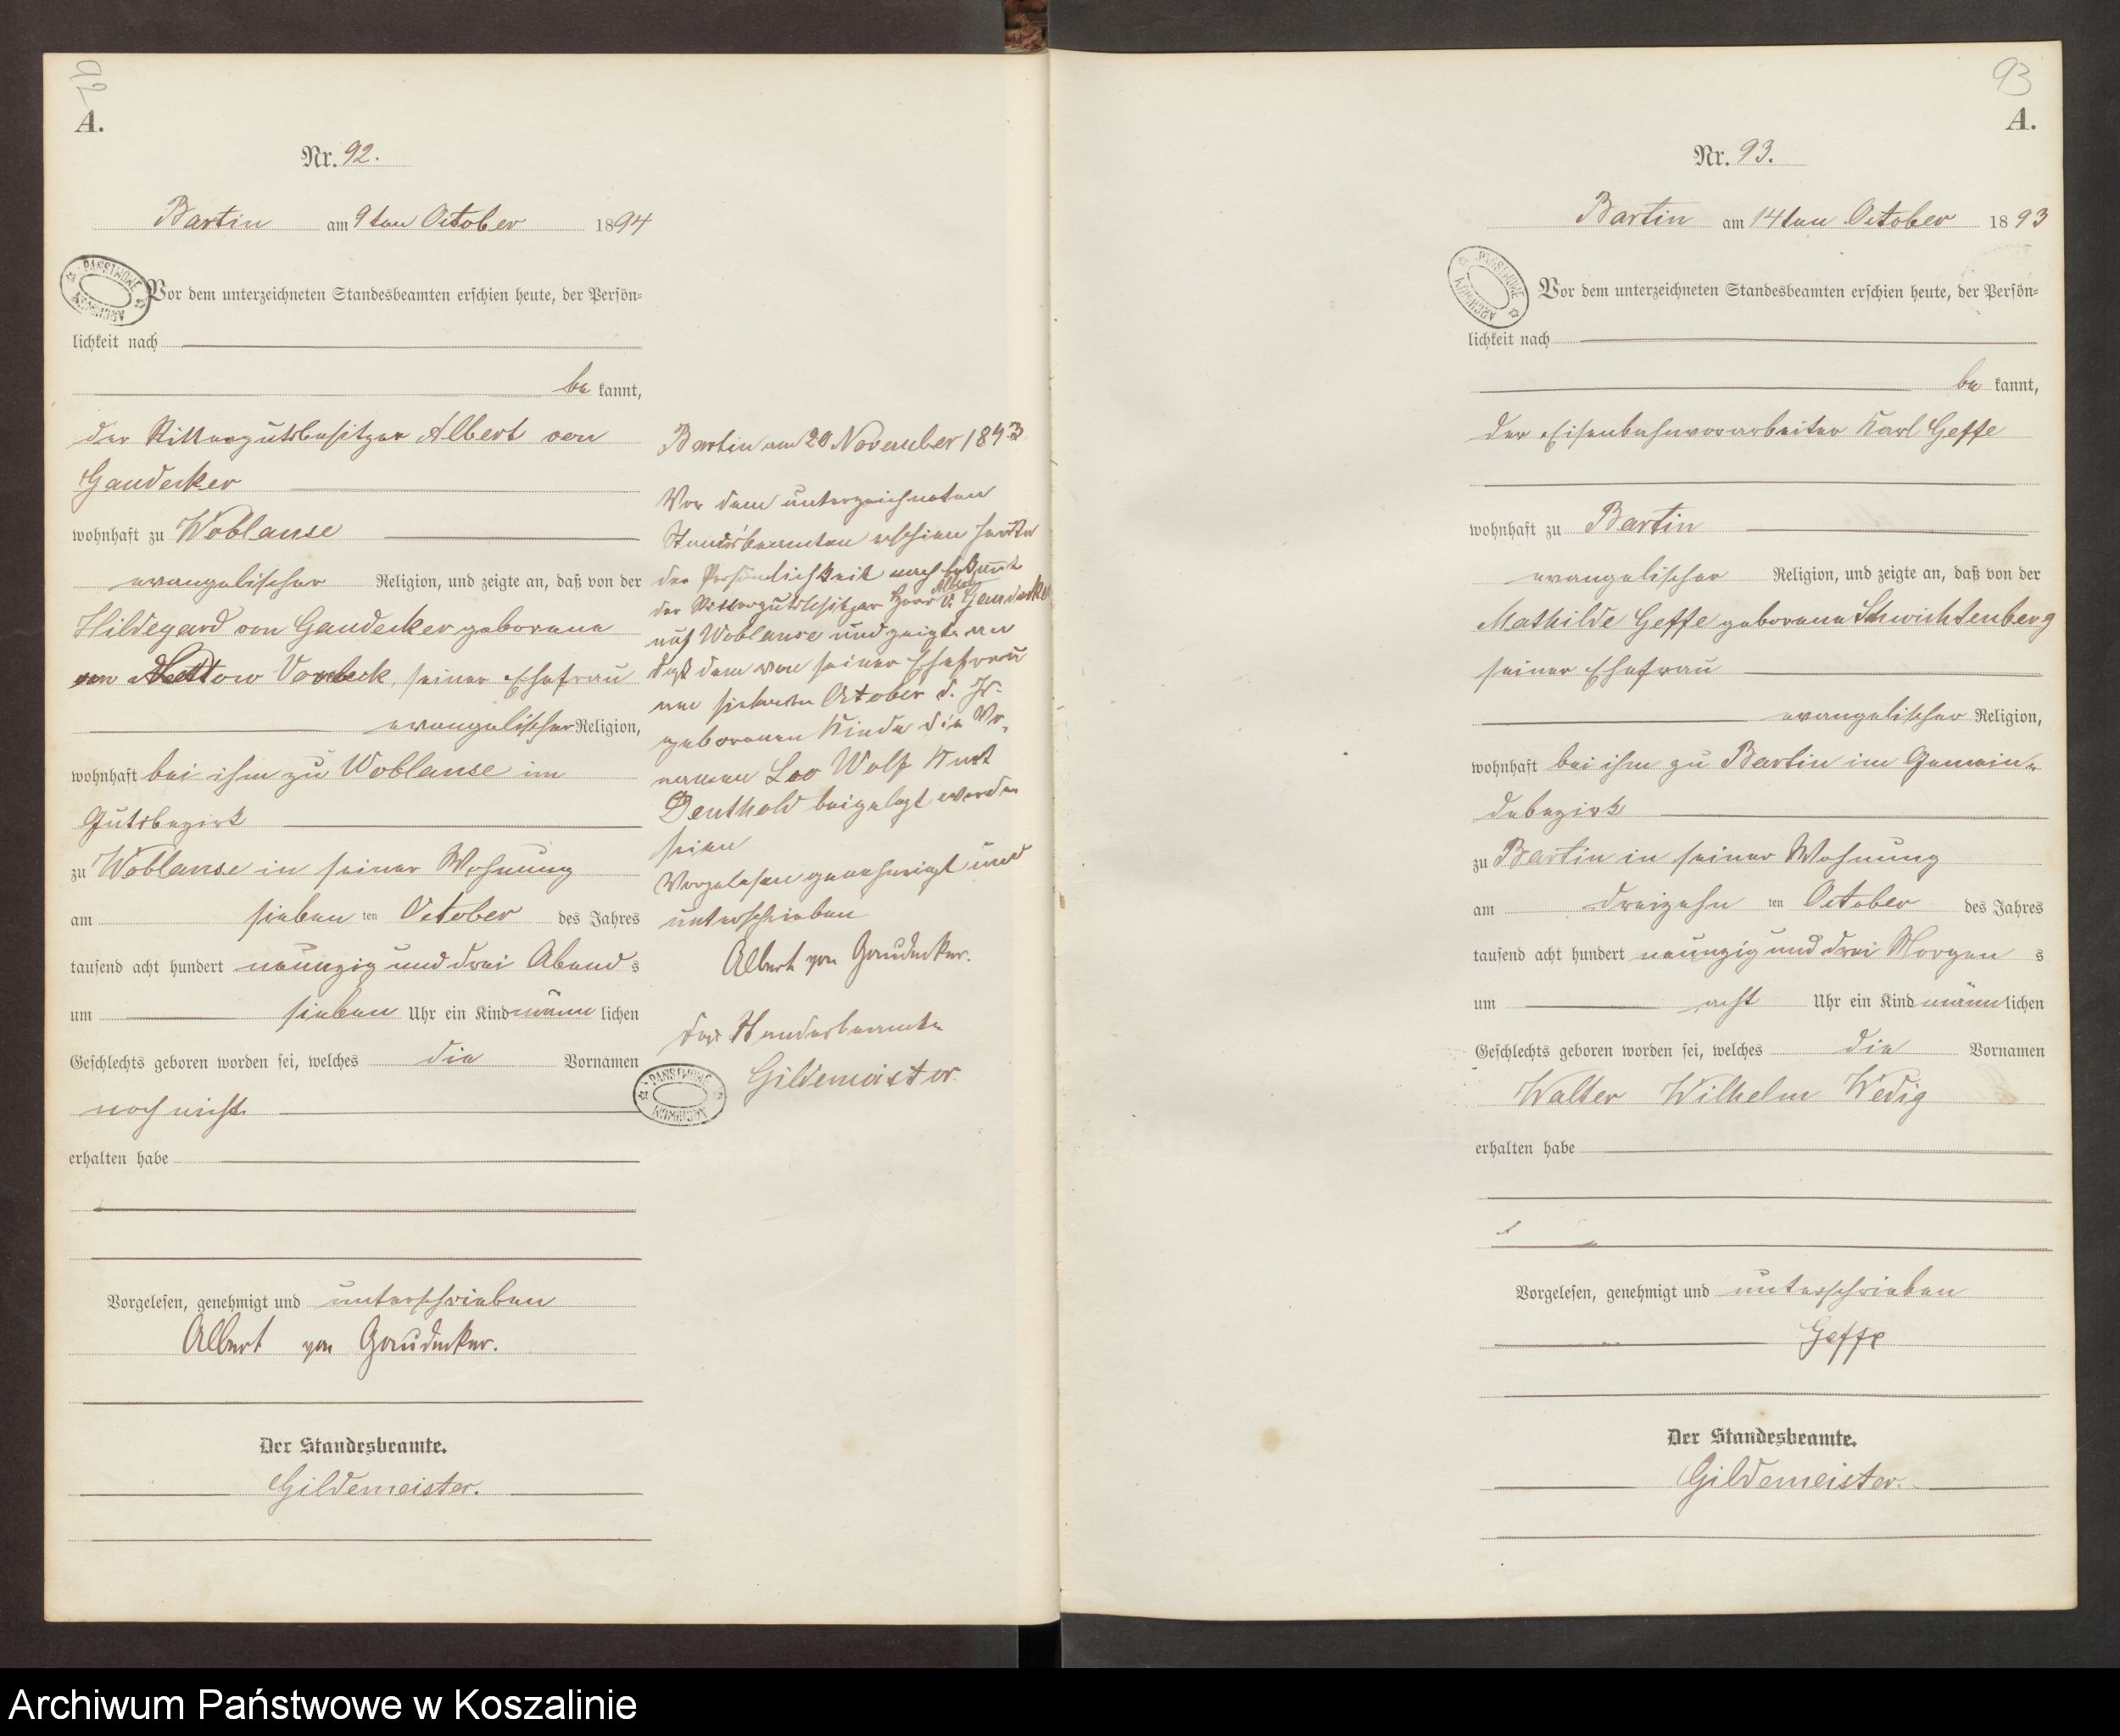 92
A.
Nr. 92.
Bartin am 9ten October 1894
PAŃSTWOWE ARCHIWUM
Vor dem unterzeichneten Standesbeamten erschien heute, der Persön-
lichkeit nach
be kannt,
der Rittergutsbesitzer Albert von
Gaudecker
wohnhaft zu Woblanse
evangelischer Religion, und zeigte an, daß von der
Hildegard von Gaudecker geborene
von Vorbeck, seiner Ehefrau
evangelischer Religion,
wohnhaft bei ihm zu Woblanse im
Gutsbezirk
zu Woblanse in seiner Wohnung
am sieben ten October des Jahres
tausend acht hundert neunzig und drei Abend s
um sieben Uhr ein Kind männ lichen
Geschlechts geboren worden sei, welches die Vornamen
noch nicht
erhalten habe
Vorgelesen, genehmigt und unterschrieben
Albert von Gaudecker.
Der Standesbeamte.
Gildemeister.
Bartin am 20 November 1893
Vor dem unterzeichneten
Standesbeamten erschien heute
der Persönlichkeit nach bekannt
der Rittergutsbesitzer Herr Albert v. Gaudecker
auf Woblanse und zeigte an
daß dem von seiner Ehefrau
am siebenten October d. Js.
geborenen Kinde die Vor-
namen Leo Wolf Kurt
Denthold beigelegt worden
seien
Vorgelesen genehmigt und
unterschrieben
Albert von Gaudecker.
Der Standesbeamte
Gildemeister.
PAŃSTWOWE ARCHIWUM
93
A.
Nr. 93.
Bartin am 14ten October 1893
PAŃSTWOWE ARCHIWUM
Vor dem unterzeichneten Standesbeamten erschien heute, der Persön-
lichkeit nach
be kannt,
der Eisenbahnvorarbeiter Karl Geffe
wohnhaft zu Bartin
evangelischer Religion, und zeigte an, daß von der
Mathilde Geffe geborene Schwichtenberg
seiner Ehefrau
evangelischer Religion,
wohnhaft bei ihm zu Bartin im Gemein-
debezirk
zu Bartin in seiner Wohnung
am dreizehn ten October des Jahres
tausend acht hundert neunzig und drei Morgen s
um acht Uhr ein Kind männlichen
Geschlechts geboren worden sei, welches die Vornamen
Walter Wilhelm Wedig
erhalten habe
Vorgelesen, genehmigt und unterschrieben
Geffe
Der Standesbeamte.
Gildemeister.
Archiwum Państwowe w Koszalinie